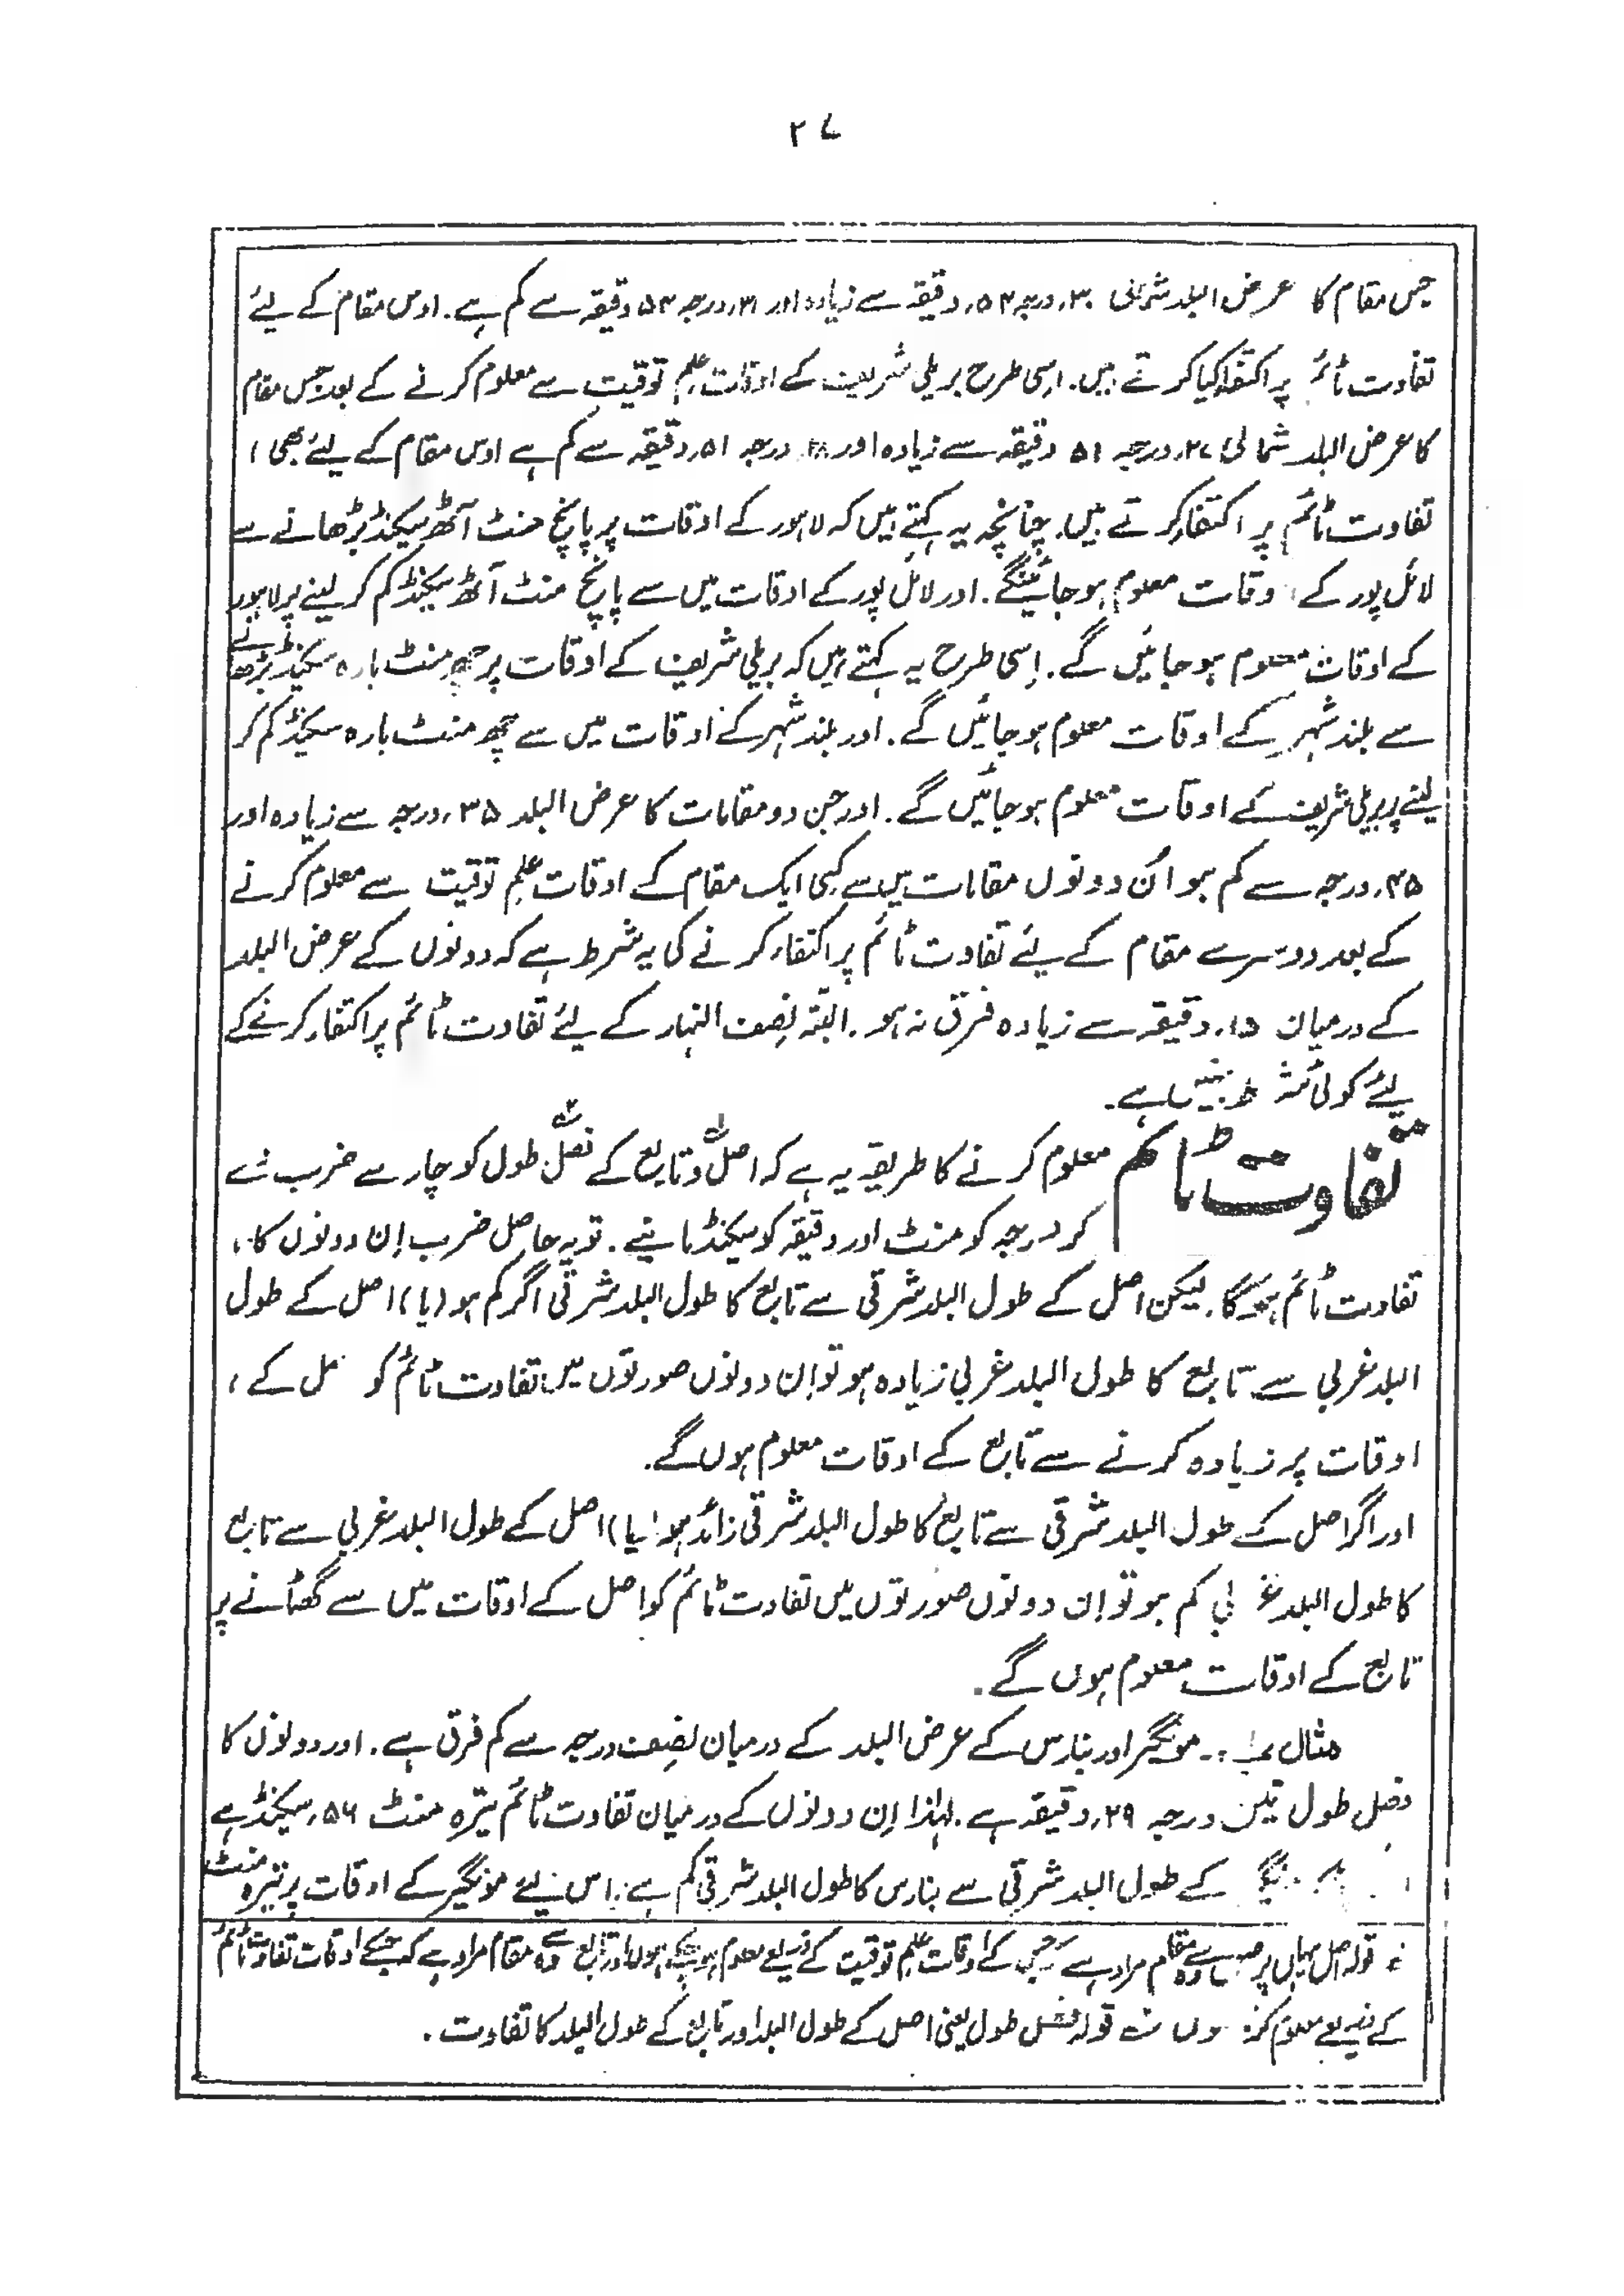 ۲۷
جس مقام کا عرض البلد شمالی ۳۰؍ درجہ ۵۴؍ دقیقہ سے زیادہ اور ۳۱؍ درجہ ۵۴ دقیقہ سے کم ہے۔ اوس مقام کے لیئے
تفاوت ٹائم پر اکتفا کیا کرتے ہیں۔ اسی طرح بریلی شریف کے اوقات علم توقیت سے معلوم کرنے کے بعد جس مقام
کا عرض البلد شمالی ۲۷؍ درجہ ۵۱ دقیقہ سے زیادہ اور ۲۸ درجہ ۵۱؍ دقیقہ سے کم ہے اوس مقام کے لیئے بھی
تفاوت ٹائم پر اکتفا کرتے ہیں۔ چنانچہ یہ کہتے ہیں کہ لاہور کے اوقات پر پانچ منٹ آٹھ سیکنڈ بڑھانے سے
لائل پور کے اوقات معلوم ہو جائینگے۔ اور لائل پور کے اوقات میں سے پانچ منٹ آٹھ سیکنڈ کم کر لینے پر لاہور
کے اوقات معلوم ہو جائیں گے۔ اِسی طرح یہ کہتے ہیں کہ بریلی شریف کے اوقات پر چھ منٹ بارہ سیکنڈ بڑھانے
سے بلند شہر کے اوقات معلوم ہو جائیں گے۔ اور بلند شہر کے اوقات میں سے چھ منٹ بارہ سیکنڈ کم کر
لینے پر بریلی شریف کے اوقات معلوم ہو جائیں گے۔ اور جن دو مقامات کا عرض البلد ۳۵؍ درجہ سے زیادہ اور
۴۵؍ درجہ سے کم ہو اُن دونوں مقامات میں سے کسی ایک مقام کے اوقات علم توقیت سے معلوم کرنے
کے بعد دوسرے مقام کے لیئے تفاوت ٹائم پر اکتفاء کرنے کی یہ شرط ہے کہ دونوں کے عرض البلد
کے درمیان ۱۵؍ دقیقہ سے زیادہ فرق نہ ہو۔ البتہ نصف النہار کے لیئے تفاوت ٹائم پر اکتفاء کرنے کے
لیئے کوئی شرط نہیں ہے۔
تفاوت ٹائم معلوم کرنے کا طریقہ یہ ہے کہ اصل و تابع کے فصل طول کو چار سے ضرب دے
کر درجہ کو منٹ اور دقیقہ کو سیکنڈ مانیے۔ تو یہ حاصل ضرب اِن دونوں کا
تفاوت ٹائم ہوگا۔ لیکن اصل کے طول البلد شرقی سے تابع کا طول البلد شرقی اگر کم ہو (یا) اصل کے طول
البلد غربی سے تابع کا طول البلد غربی زیادہ ہو تو اِن دونوں صورتوں میں تفاوت ٹائم کو اصل کے
اوقات پر زیادہ کرنے سے تابع کے اوقات معلوم ہوں گے۔
اور اگر اصل کے طول البلد شرقی سے تابع کا طول البلد شرقی زائد ہو (یا) اصل کے طول البلد غربی سے تابع
کا طول البلد غربی کم ہو تو اِن دونوں صورتوں میں تفاوت ٹائم کو اصل کے اوقات میں سے گھٹانے پر
تابع کے اوقات معلوم ہوں گے۔
مثال ۱:۔ مونگیر اور بنارس کے عرض البلد کے درمیان نصف درجہ سے کم فرق ہے۔ اور دونوں کا
فصل طول تین درجہ ۲۹؍ دقیقہ ہے۔ لہٰذا اِن دونوں کے درمیان تفاوت ٹائم تیرہ منٹ ۵۶؍ سیکنڈ ہے
کے طول البلد شرقی سے بنارس کا طول البلد شرقی کم ہے۔ اس لیئے مونگیر کے اوقات پر تیرہ منٹ
قولہ اصل یہاں پر اصل سے وہ مقام مراد ہے جس کے اوقات علم توقیت کے ذریعے معلوم ہو چکے ہوں اور تابع سے وہ مقام مراد ہے کہ جسکے اوقات تفاوت ٹائم
کے ذریعے معلوم کرنے ہوں قولہ فصل طول یعنی اصل کے طول البلد اور تابع کے طول البلد کا تفاوت۔